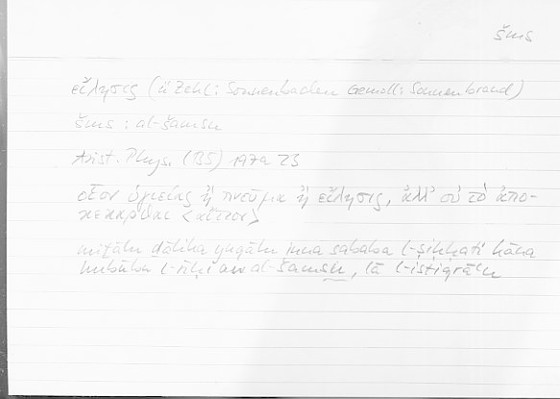 šms
εἴλησις (ü Zekl: Sonnenbaden Gemoll: Sonnenbrand)
šms : al-šamsu
Arist. Phys. (B5) 197a 23
οἷον ὑγιείας ἢ πνεῦμα ἢ εἴλησις, ἀλλ' οὐ τὸ ἀπο-
κεκάρθαι <αἴτιον>
miṯālu ḏālika yuqālu inna sababa l-ṣiḥḥati kāna
hubūba l-rīḥi aw al-šamsu, lā l-istiqrāʾu